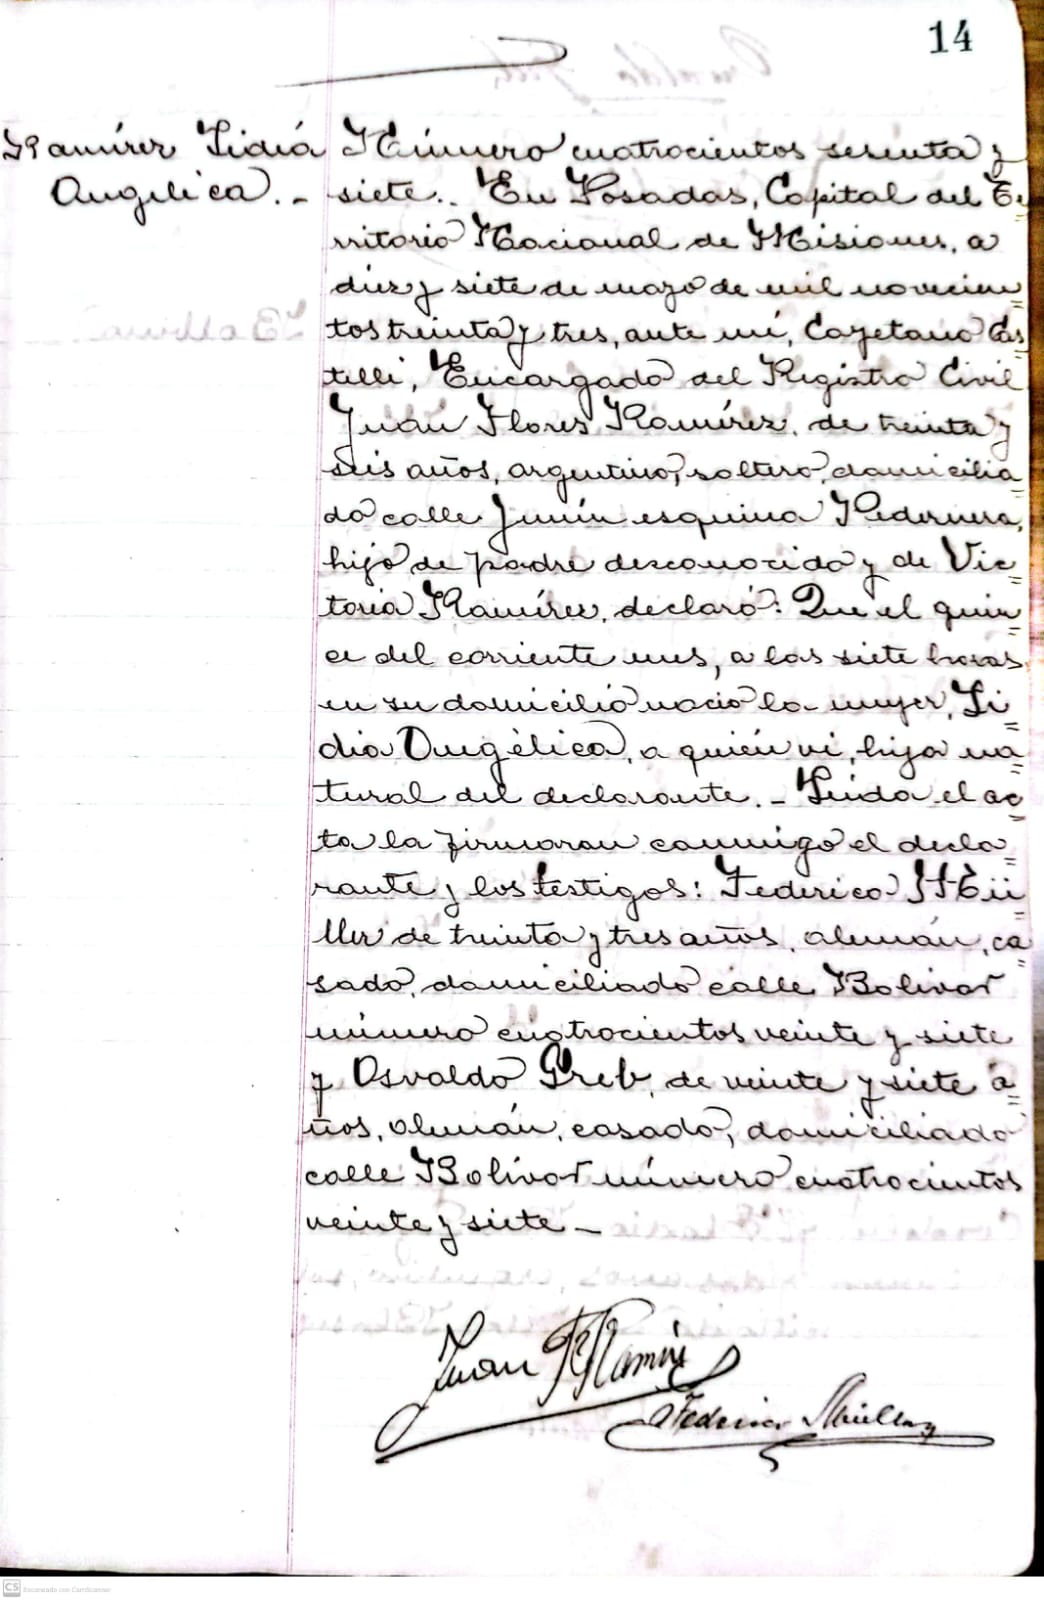 14
Ramírez Lidia
Angélica. -
Número cuatrocientos sesenta y
siete.. En Posadas, Capital del Te=
rritorio Nacional de Misiones, a
diez y siete de mayo de mil novecien=
tos treinta y tres, ante mí, Cayetano Cas=
telli, Encargado del Registro Civil
Juan Flores Ramírez, de treinta y
seis años, argentino, soltero, domicilia=
do calle Junín esquina Pedernera,
hijo de padre desconocido y de Vic=
toria Ramírez, declaró: Que el quin=
ce del corriente mes, a las siete horas
en su domicilio nació la mujer, Li=
dia Angélica, a quién vi, hija na=
tural del declarante. - Leída el ac=
ta la firmaron conmigo el decla=
rante y los testigos: Federico Mü=
ller de treinta y tres años, alemán, ca=
sado, domiciliado calle Bolivar
número cuatrocientos veinte y siete
y Osvaldo Greb, de veinte y siete a=
ños, alemán, casado, domiciliado
calle Bolívar número cuatrocientos
veinte y siete -
Juan F Ramirez
Federico Müller
CS Escaneado con CamScanner